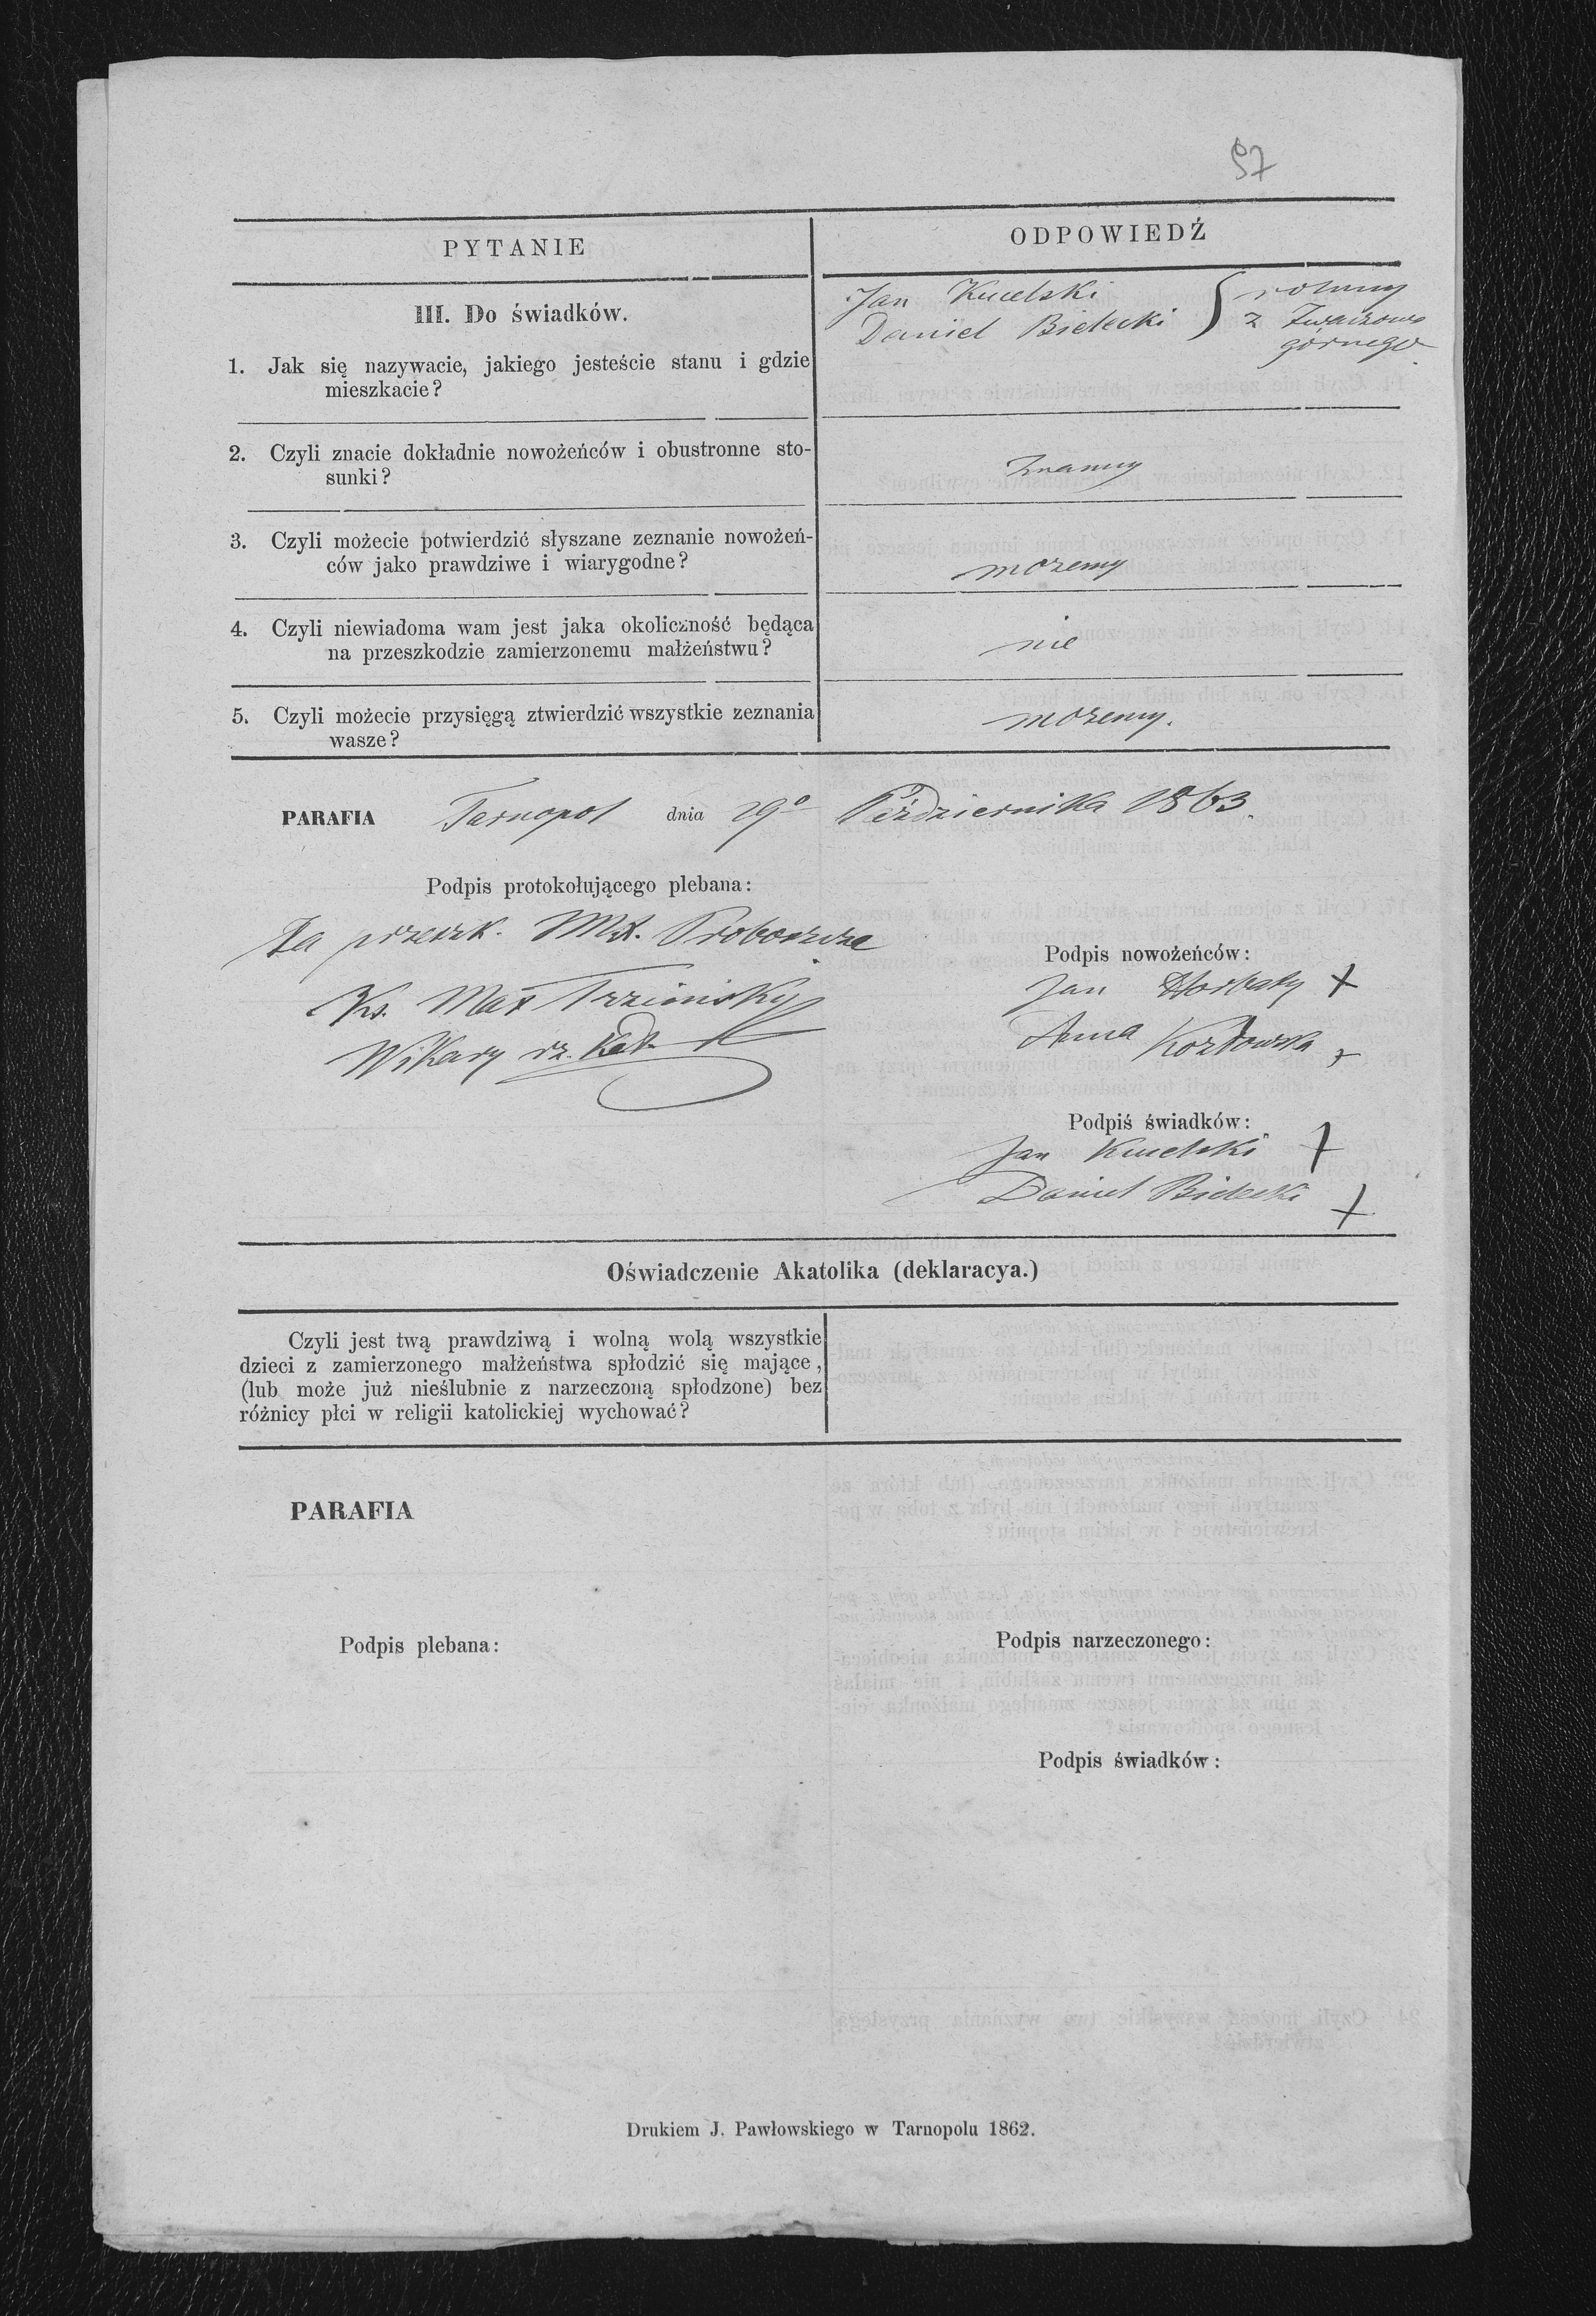 97
PYTANIE
ODPOWIEDŹ
III. Do świadków.
1. Jak się nazywacie, jakiego jesteście stanu i gdzie
mieszkacie?
Jan Kucelski
Daniel Bielecki
} rolnicy
z
górnego
2. Czyli znacie dokładnie nowożeńców i obustronne sto-
sunki?
znamy
3. Czyli możecie potwierdzić słyszane zeznanie nowożeń-
ców jako prawdziwe i wiarygodne?
mozemy
4. Czyli niewiadoma wam jest jaka okoliczność będąca
na przeszkodzie zamierzonemu małżeństwu?
nie
5. Czyli możecie przysięgą ztwierdzić wszystkie zeznania
wasze?
mozemy.
PARAFIA Tarnopol dnia 29o Października 1863.
Podpis protokołującego plebana:
Za przeszk. Proboszcza
Ks. Max
Wikary rz. kat.
Podpis nowożeńców:
Jan Horbaty +
Anna Kozłowska +
Podpiś świadków:
Jan Kucelski +
Daniel Bielecki +
Oświadczenie Akatolika (deklaracya.)
Czyli jest twą prawdziwą i wolną wolą wszystkie
dzieci z zamierzonego małżeństwa spłodzić się mające,
(lub może już nieślubnie z narzeczoną spłodzone) bez
różnicy płci w religii katolickiej wychować?
PARAFIA
Podpis plebana:
Podpis narzeczonego:
Podpis świadków:
Drukiem J. Pawłowskiego w Tarnopolu 1862.